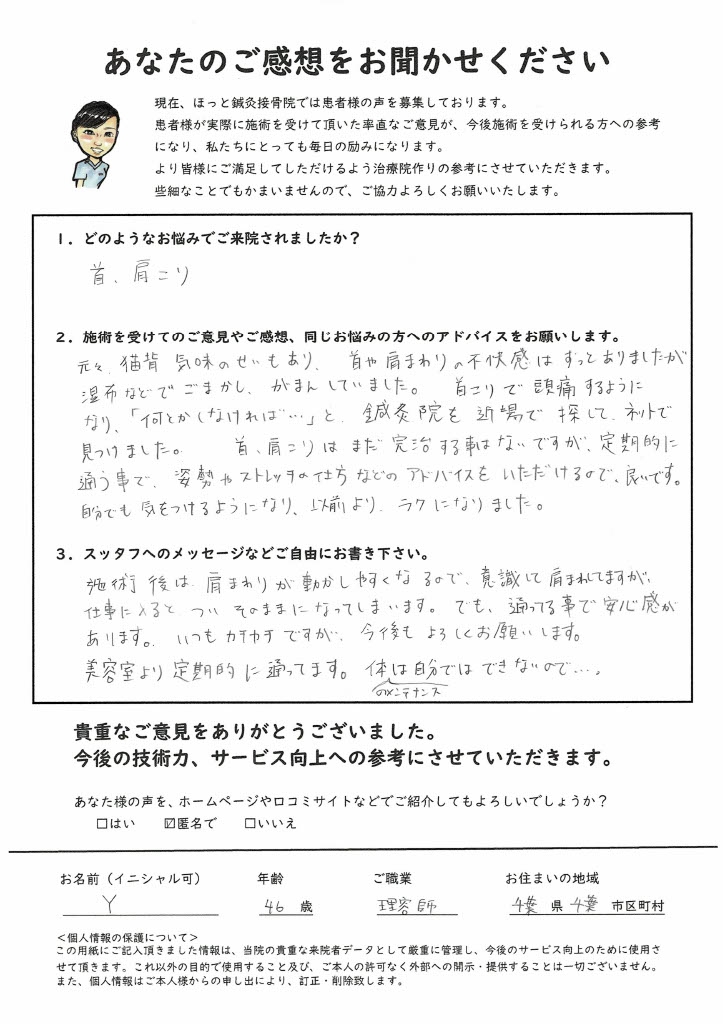 あなたのご感想をお聞かせください
現在、ほっと鍼灸接骨院では患者様の声を募集しております。
患者様が実際に施術を受けて頂いた率直なご意見が、今後施術を受けられる方への参考
になり、私たちにとっても毎日の励みになります。
より皆様にご満足してしただけるよう治療院作りの参考にさせていただきます。
些細なことでもかまいませんので、ご協力よろしくお願いいたします。
1．どのようなお悩みでご来院されましたか？
首、肩こり
2．施術を受けてのご意見やご感想、同じお悩みの方へのアドバイスをお願いします。
元々、猫背 気味のせいもあり、首や肩まわりの不快感はずっとありましたが
湿布などでごまかし、がまんしていました。首こりで頭痛するように
なり、「何とかしなければ…」と、鍼灸院を近場で探して、ネットで
見つけました。 首、肩こりはまだ完治する事はないですが、定期的に
通う事で、姿勢やストレッチの仕方などのアドバイスをいただけるので、良いです。
自分でも気をつけるようになり、以前よりラクになりました。
3．スッタフへのメッセージなどご自由にお書き下さい。
施術後は、肩まわりが動かしやすくなるので、意識して肩まわしてますが、
仕事に入ると ついそのままになってしまいます。でも、通ってる事で安心感が
あります。いつもカチカチですが、今後もよろしくお願いします。
美容室より定期的に通ってます。体は自分ではできないので…。
のメンテナンス
貴重なご意見をありがとうございました。
今後の技術力、サービス向上への参考にさせていただきます。
あなた様の声を、ホームページや口コミサイトなどでご紹介してもよろしいでしょうか？
□はい ☑匿名で □いいえ
お名前（イニシャル可） 年齢 ご職業 お住まいの地域
Y 46 歳 理容師 千葉 県 千葉 市区町村
＜個人情報の保護について＞
この用紙にご記入頂きました情報は、当院の貴重な来院者データとして厳重に管理し、今後のサービス向上のために使用さ
せて頂きます。これ以外の目的で使用すること及び、ご本人の許可なく外部への開示・提供することは一切ございません。
また、個人情報はご本人様からの申し出により、訂正・削除致します。